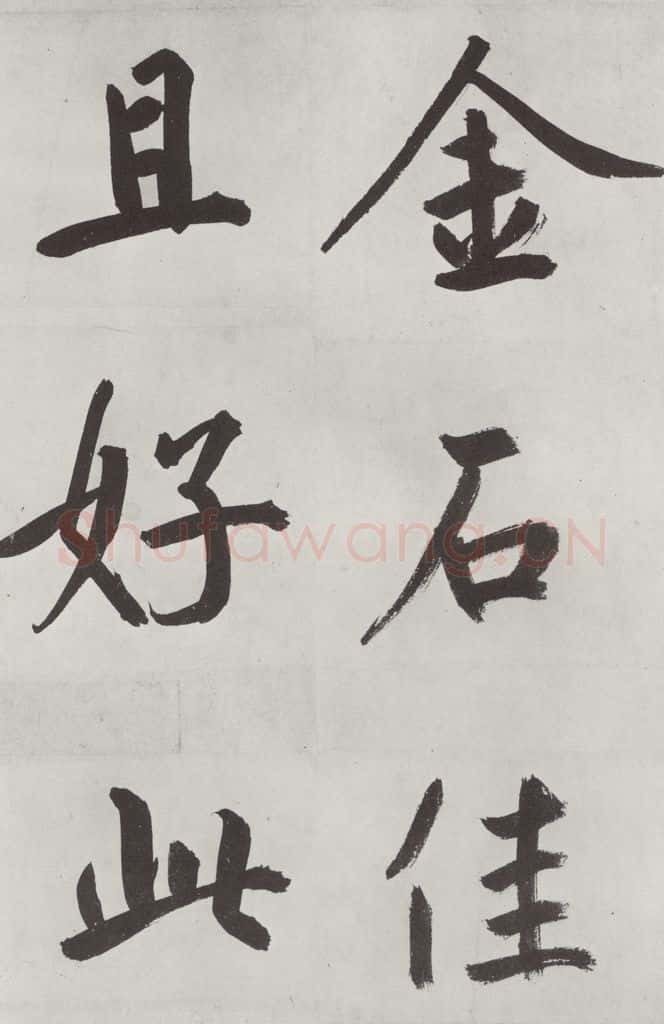 金石佳
且好此
Shufawang.CN